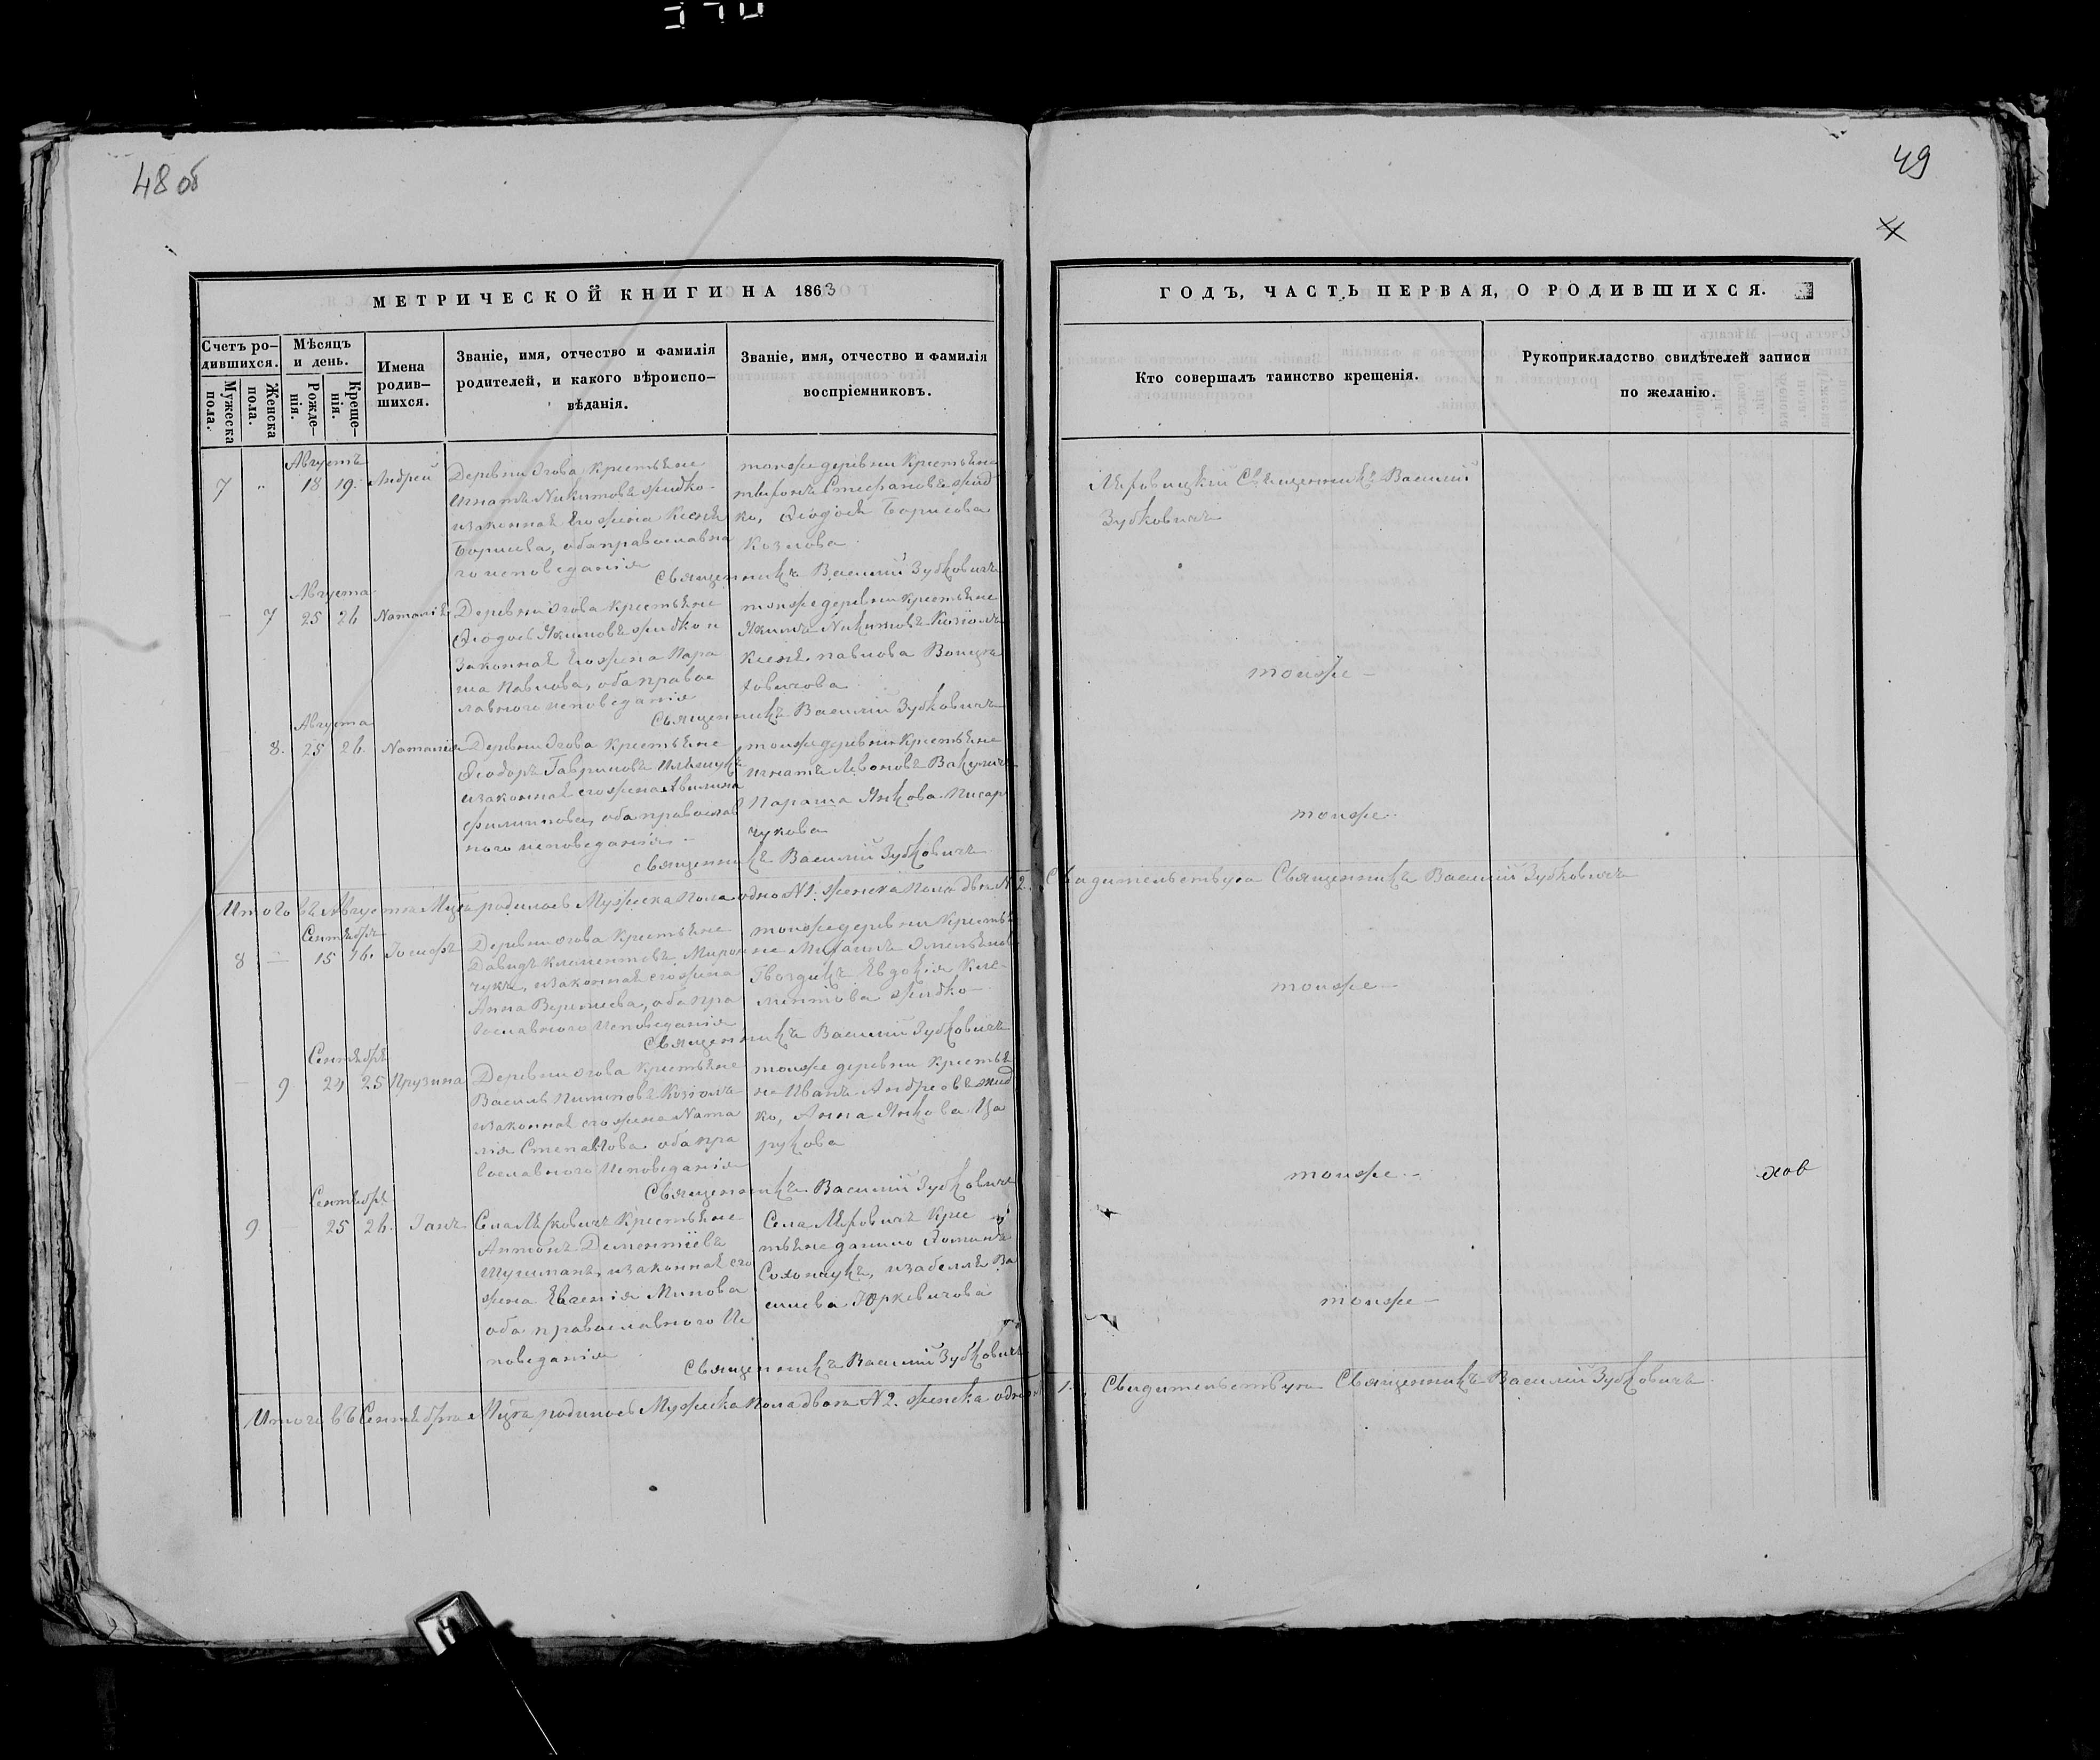 48 об
49
МЕТРИЧЕСКОЙ КНИГИ НА 1863
ГОДЪ, ЧАСТЬ ПЕРВАЯ, О РОДИВШИХСЯ.
Счетъ ро-
дившихся.
Мужеска
пола.
Женска
пола.
Мѣсяцъ
и день.
Рожде-
нія.
Креще-
нія.
Имена
родив-
шихся.
Званіе, имя, отчество и фамилія
родителей, и какого вѣроиспо-
вѣданія.
Званіе, имя, отчество и фамилія
воспріемниковъ.
Кто совершалъ таинство крещенія.
Рукоприкладство свидѣтелей записи
по желанію.
Августъ
7 „ 18 19. Андрей
Деревни Огова Крестьяне
Игнатъ Никитовъ Жидко
изаконная Его жена Ксенѣ
Борисова, оба православна
го исповеданія
тоиже деревни Крестьяне
Стефановъ Жид
ко, Ѳеодося Борисова
Козлова
Священникъ Василій Зубковичъ
Священникъ Василій
Зубковичъ
Августа
7 25 26 Наталія
Деревни Огова Крестьяне
Якимовъ Жидко и
Законная Его жена Пара
ша Павлова, оба правос
лавного исповеданія
тоиже деревни Крестьяне
Якимъ Никитовъ Козіолъ
Ксенѣ Павлова
Священникъ Василій Зубковичъ
тоиже –
Августа
8. 25 26. Наталія
Деревни Огова Крестьяне
Ѳеодоръ Гавриловъ
изаконная его жена Авилина
Филипова, оба православ
ного исповеданія –
тоиже деревни Крестьяне
Игнатъ Левоновъ
Параша Янкова Писар
чукова
Священникъ Василій Зубковичъ
тоиже
Итого въ Августа Мцѣ родилось Мужеска Пола одно N 1. женска Пола двѣ N 2.
Свидительствую Священникъ Василій Зубковичъ
Сентября
8 – 15 16. Іосифъ
Деревни Огова Крестьяне
Давидъ Климентовъ Мирон
чукъ, изаконная его жена
Анна Веремеева, оба пра
вославного Исповеданія
тоиже деревни Крестья
не Михаилъ Омельянов
Гвоздикъ Евдокія Кле
ментова Жидко –
Священникъ Василій Зубковичъ
тоиже –
Сентября
– 9 24 25 Прузина
Деревни Огова Крестьяне
Василь Пилиповъ Козіолъ
изаконная его жена Ната
лія Степанова оба пра
вославного Исповеданія
тоиже деревни Крестья
не Иванъ Андреовъ Жид
ко, Анна Янкова Ца
рукова
Священникъ Василій Зубковичъ
тоиже –
Сентября
9. – 25 26. Іанъ
Села Крестьяне
Антонъ Дементіевъ
Шушманъ, изаконная его
жена Евгенія Минова
оба православного Ис
поведанія
Села Крес
тьяне Данило
изабелля Ва
силева Юркевичова
Священникъ Василій Зубковичъ
тоиже –
Итого въ Сентября Мцѣ родилось Мужеска Пола двое N 2. женска одна N 1.
Свидительствую Священникъ Василій Зубковичъ